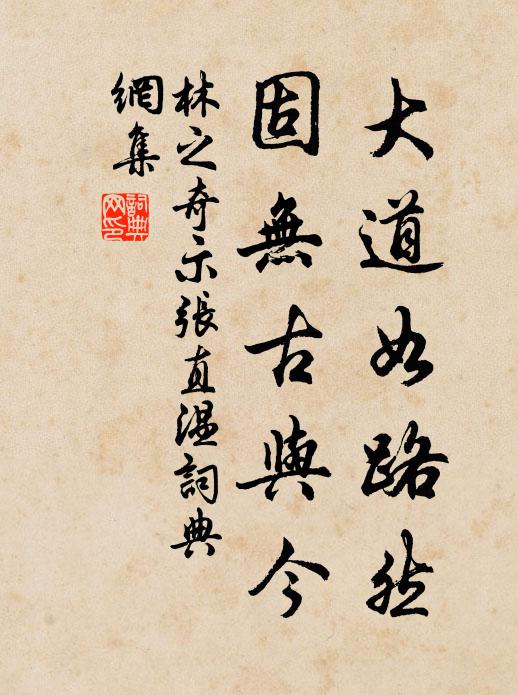 大道如路然
固無古與今
林之奇示張直温詞典
網集
詞典網印